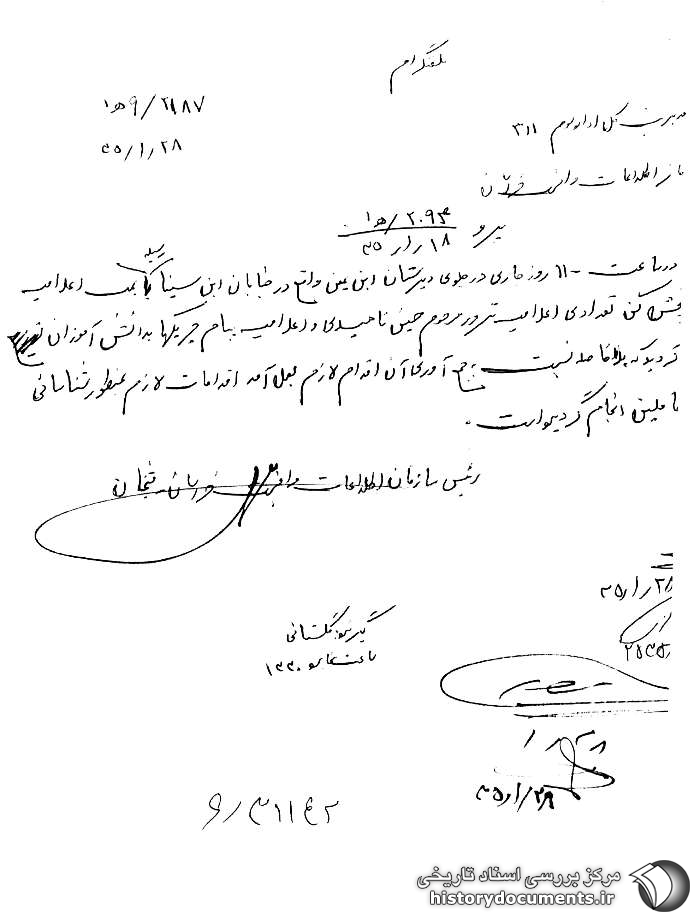 تلگرام
۵هـ/۹/۲۱۸۷
۳۵/۱/۲۸
مدیریت کل اداره سوم ۳۱۱
از اطلاعات و امنیت
پیرو ۲۰۹۳/هـ۱
۳۵/۱/۱۸
در ساعت ۱۱۰۰ روز جاری در جلوی دبیرستان ابن یمین واقع در خیابان ابن سینا بوسیله بمب اعلامیه
پخش کن تعدادی اعلامیه ترور مرحوم حسین ناهیدی و اعلامیه پیام چریکها بدانش آموزان
گردید که بلافاصله نسبت بجمع آوری آن اقدام لازم بعمل آمد اقدامات لازم بمنظور شناسائی
عاملین انجام گردیده است.
رئیس سازمان اطلاعات و امنیت خراسان شیخان
۳۵/۱/۲۸
۲۵۳۵
گیرنده گلستانی
ساعت ۱۳۳۰
۲۸
۳۵/۱/۲۹
۶/۳۱۱۴۲
مرکز بررسی اسناد تاریخی
historydocuments.ir